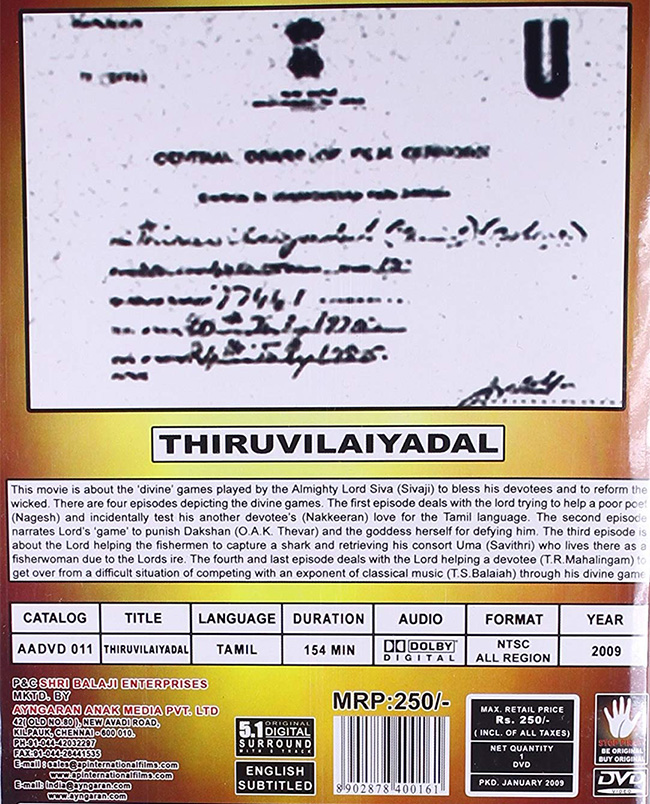 U
CENTRAL BOARD OF FILM
Thiruvilaiyadal
THIRUVILAIYADAL
This movie is about the 'divine' games played by the Almighty Lord Siva (Sivaji) to bless his devotees and to reform the
wicked. There are four episodes depicting the divine games. The first episode deals with the lord trying to help a poor poet
(Nagesh) and incidentally test his another devotee's (Nakkeeran) love for the Tamil language. The second episode
narrates Lord's 'game' to punish Dakshan (O.A.K. Thevar) and the goddess herself for defying him. The third episode is
about the Lord helping the fishermen to capture a shark and retrieving his consort Uma (Savithri) who lives there as a
fisherwoman due to the Lords ire. The fourth and last episode deals with the Lord helping a devotee (T.R.Mahalingam) to
get over from a difficult situation of competing with an exponent of classical music (T.S.Balaiah) through his divine game
CATALOG TITLE LANGUAGE DURATION AUDIO FORMAT YEAR
AADVD 011 THIRUVILAIYADAL TAMIL 154 MIN DOLBY DIGITAL NTSC ALL REGION 2009
P&C SHRI BALAJI ENTERPRISES
MKTD. BY
AYNGARAN ANAK MEDIA PVT. LTD
42( OLD NO.80 ), NEW AVADI ROAD,
KILPAUK, CHENNAI - 600 010.
PH:91-044-42032297
FAX:91-044-26441535
E-mail : sales@apinternationalfilms.com
www.apinternationalfilms.com
E-mail: india@ayngaran.com
www.ayngaran.com
5.1 ORIGINAL
DIGITAL
SURROUND
WITH 6 TRACK
ENGLISH
SUBTITLED
MRP:250/-
8902878400161
MAX. RETAIL PRICE
Rs. 250/-
( INCL. OF ALL TAXES)
NET QUANTITY
1
DVD
PKD. JANUARY 2009
BE ORIGINAL
BUY ORIGINAL
DVD
VIDEO